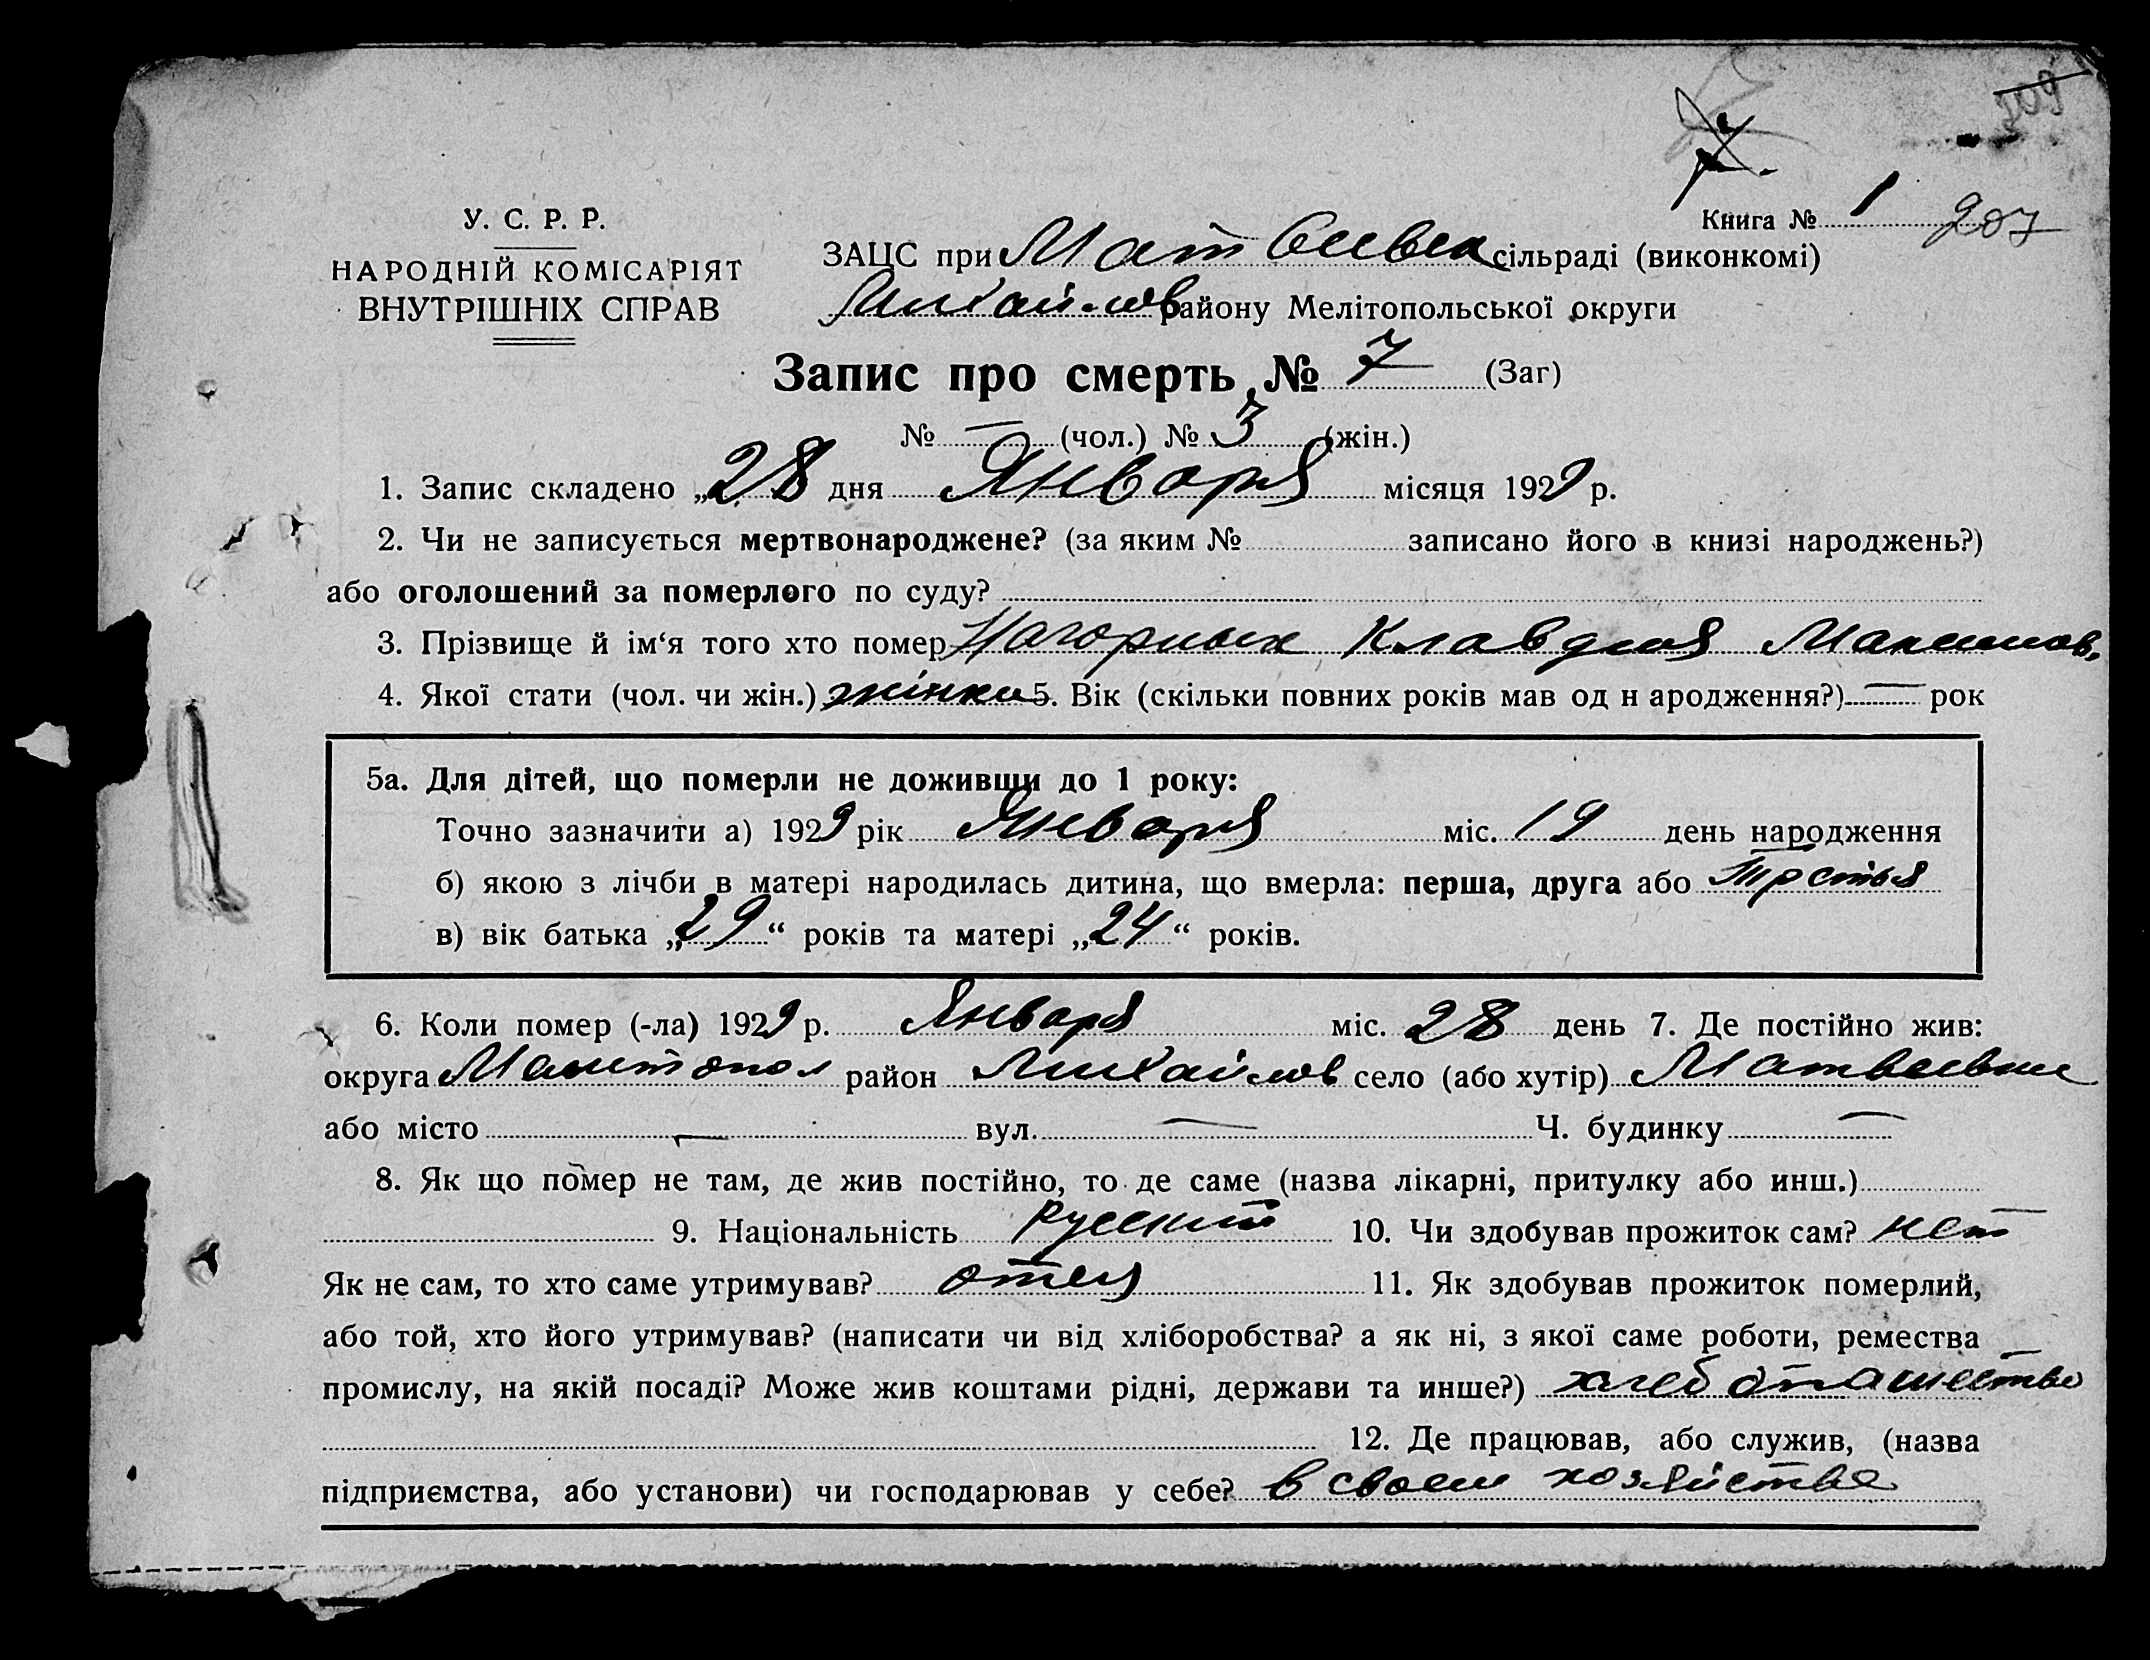 7.
209
У. С. Р. Р.
НАРОДНІЙ КОМІСАРІЯТ
ВНУТРІШНІХ СПРАВ
Книга № 1 207
ЗАЦС при Матвеевск сільраді (виконкомі)
Михайлов району Мелітопольської округи
Запис про смерть № 7 (Заг)
№ — (чол.) № 3 (жін.)
1. Запис складено „28 дня Января місяця 1929 р.
2. Чи не записується мертвонароджене? (за яким № записано його в книзі народжень?)
або оголошений за померлого по суду?
3. Прізвище й ім‘я того хто помер Нагорных Клавдия Максимов.
4. Якої стати (чол. чи жін.) жінка 5. Вік (скільки повних років мав од н ародження?) — рок
5а. Для дітей, що померли не доживши до 1 року:
Точно зазначити а) 1929 рік Января міс. 19 день народження
б) якою з лічби в матері народилась дитина, що вмерла: перша, друга або третья
в) вік батька „29“ років та матері „24“ років.
6. Коли помер (-ла) 1929 р. Января міс. 28 день 7. Де постійно жив:
округа Мелитопол район Михайлов село (або хутір) Матвеевки
або місто — вул. — Ч. будинку —
8. Як що помер не там, де жив постійно, то де саме (назва лікарні, притулку або инш.)
9. Національність русский 10. Чи здобував прожиток сам? нет
Як не сам, то хто саме утримував? отец 11. Як здобував прожиток померлий,
або той, хто його утримував? (написати чи від хліборобства? а як ні, з якої саме роботи, ремества
промислу, на якій посаді? Може жив коштами рідні, держави та инше?) хлебопашество
12. Де працював, або служив, (назва
підприємства, або установи) чи господарював у себе? в своем хозяйстве